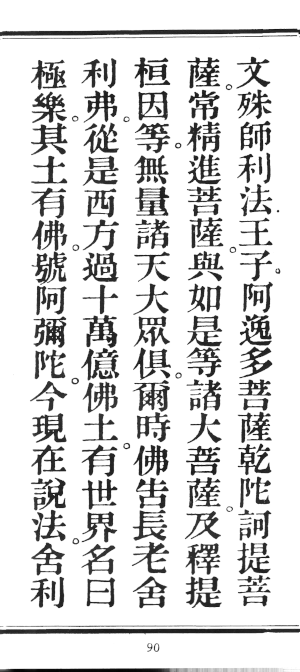 文殊師利法王子。阿逸多菩薩。乾陀訶提菩
薩。常精進菩薩。與如是等諸大菩薩。及釋提
桓因等。無量諸天大眾俱。爾時。佛告長老舍
利弗。從是西方。過十萬億佛土。有世界名曰
極樂。其土有佛。號阿彌陀。今現在說法。舍利
90